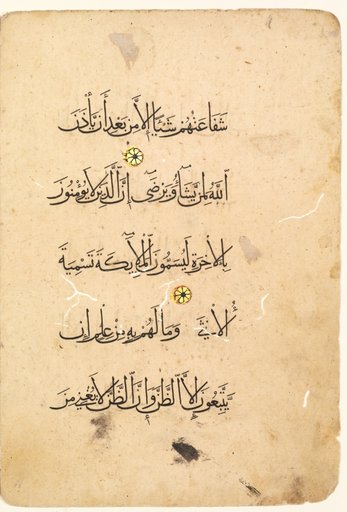 شَفَاعَتُهُمْ شَيْئًا إِلَّا مِن بَعْدِ أَن يَأْذَنَ
اللَّهُ لِمَن يَشَاءُ وَيَرْضَىٰ إِنَّ الَّذِينَ لَا يُؤْمِنُونَ
بِالْآخِرَةِ لَيُسَمُّونَ الْمَلَائِكَةَ تَسْمِيَةَ
الْأُنثَىٰ وَمَا لَهُم بِهِ مِنْ عِلْمٍ إِن
يَتَّبِعُونَ إِلَّا الظَّنَّ وَإِنَّ الظَّنَّ لَا يُغْنِي مِنَ